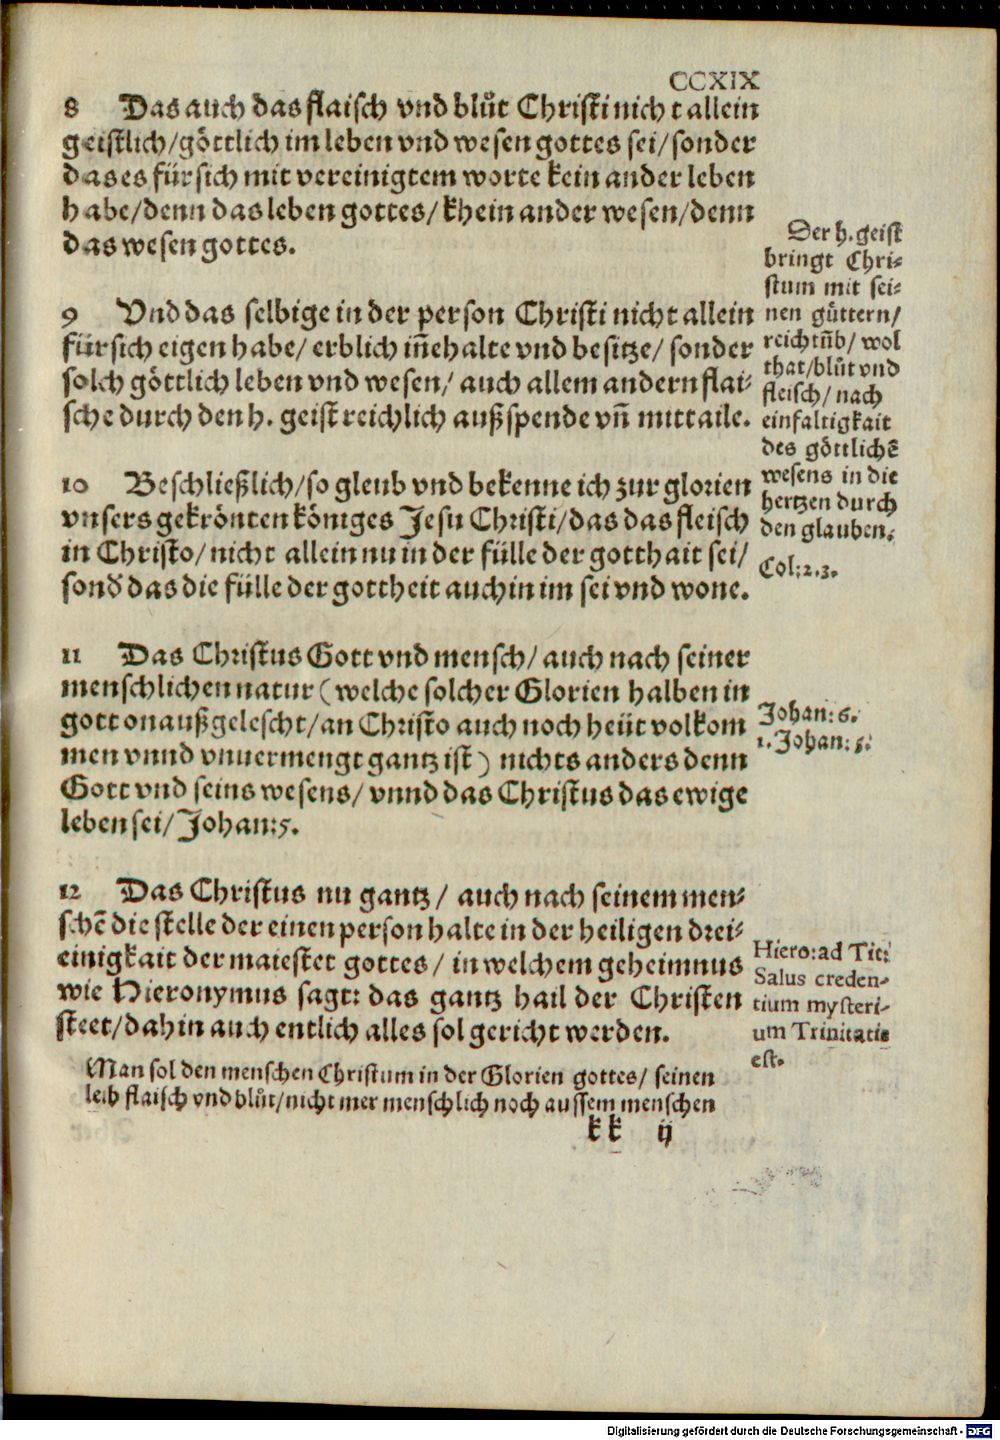 CCXIX
8 Das auch das flaisch vnd blůt Christi nicht allein
geistlich/göttlich im leben vnd wesen gottes sei/sonder
das es für sich mit vereinigtem worte kein ander leben
habe/denn das leben gottes/ khein ander wesen/denn
das wesen gottes.
9 Vnd das selbige in der person Christi nicht allein
für sich eigen habe/ erblich iñehalte vnd besitze/ sonder
solch göttlich leben vnd wesen/ auch allem andern flai⸗
sche durch den h. geist reichlich außspende vñ mittaile.
10 Beschließlich/so gleub vnd bekenne ich zur glorien
vnsers gekrönten königes Jesu Christi/das das fleisch
in Christo/ nicht allein nu in der fülle der gotthait sei/
sond̕ das die fülle der gottheit auch in im sei vnd wone.
11 Das Christus Gott vnd mensch/ auch nach seiner
menschlichen natur (welche solcher Glorien halben in
gott onaußgelescht/an Christo auch noch heüt volkom
men vnnd vnuermengt gantz ist) nichts anders denn
Gott vnd seins wesens/ vnnd das Christus das ewige
leben sei/ Johan:5.
12 Das Christus nu gantz/ auch nach seinem men⸗
schē die stelle der einen person halte in der heiligen drei⸗
einigkait der maiestet gottes/ in welchem geheimnus
wie Hieronymus sagt: das gantz hail der Christen
steet/dahin auch entlich alles sol gericht werden.
Man sol den menschen Christum in der Glorien gottes/ seinen
leib flaisch vnd blůt/nicht mer menschlich noch aussem menschen
kk ij
Der h. geist
bringt Chri⸗
stum mit sei⸗
nen güttern/
reichtũb/ wol
that/blůt vnd
fleisch/ nach
einfaltigkait
des göttlichē
wesens in die
hertzen durch
den glauben.
Col:2.3.
Johan:6.
1. Johan:5.
Hiero:ad Tit:
Salus creden-
tium mysteri-
um Trinitatis
est.
Digitalisierung gefördert durch die Deutsche Forschungsgemeinschaft - DFG